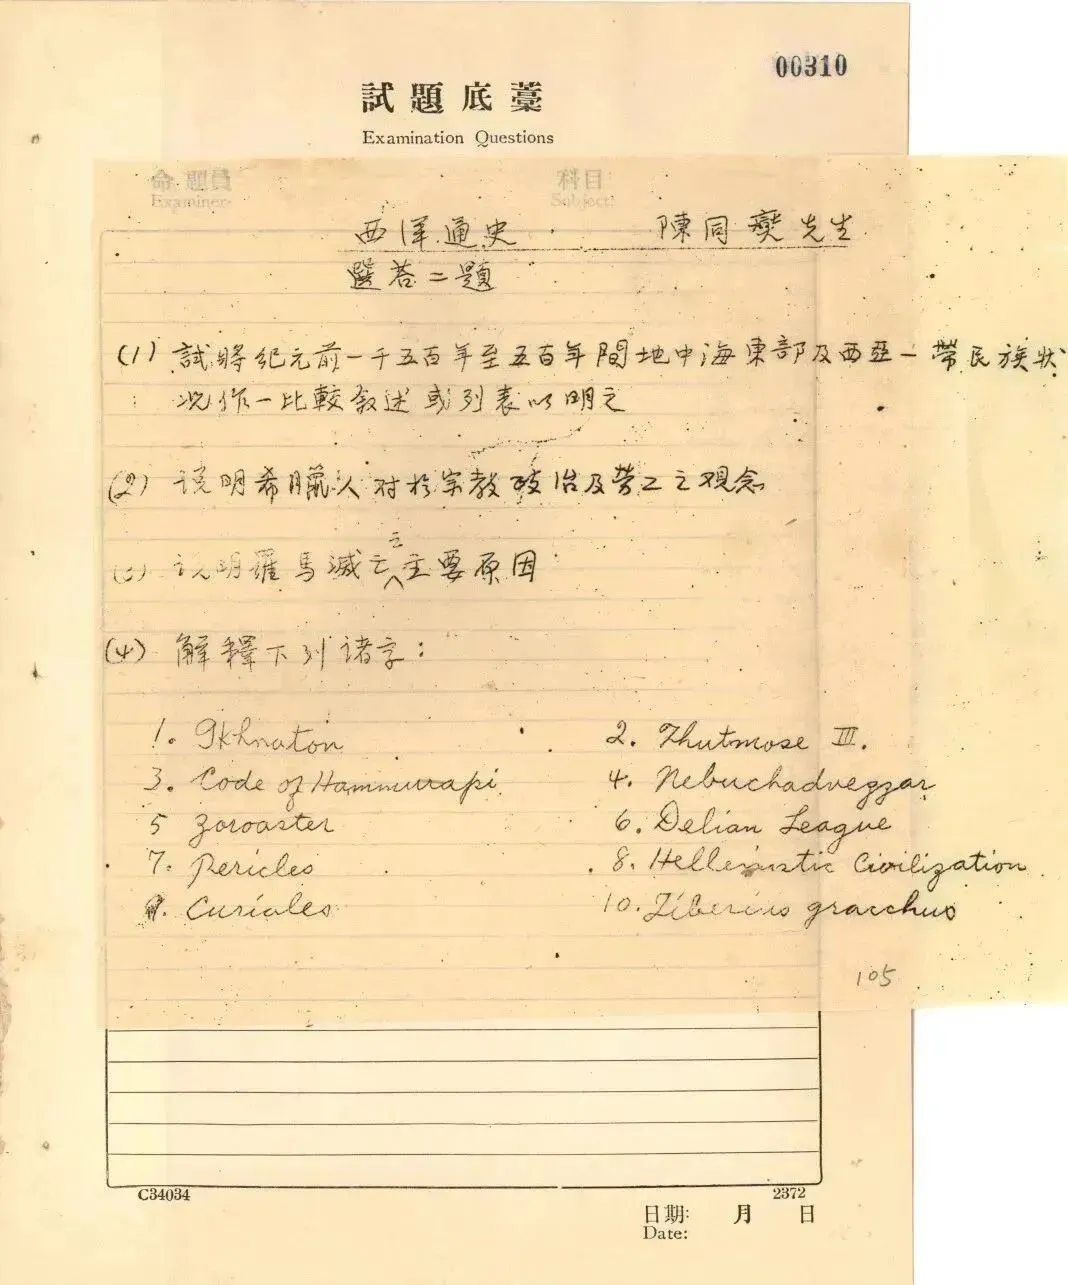 00310
試題底藁
Examination Questions
命題員 科目
Examiner: Subject:
西洋通史 陳同燮先生
選荅二題
(1) 試將紀元前一千五百年至五百年間地中海東部及西亞一帶民族狀
况作一比較敘述或列表以明之
(2) 说明希臘人对於宗教政治及勞工之观念
(3) 说明羅馬滅亡之主要原因
(4) 解釋下列諸字:
1. Ikhnaton 2. Thutmose III.
3. Code of Hammurapi 4. Nebuchadnezzar
5 Zoroaster 6. Delian League
7. Pericles 8. Hellenistic Civilization
9. Curiales 10. Tiberius gracchus
105
C34034 2372
日期: 月 日
Date: